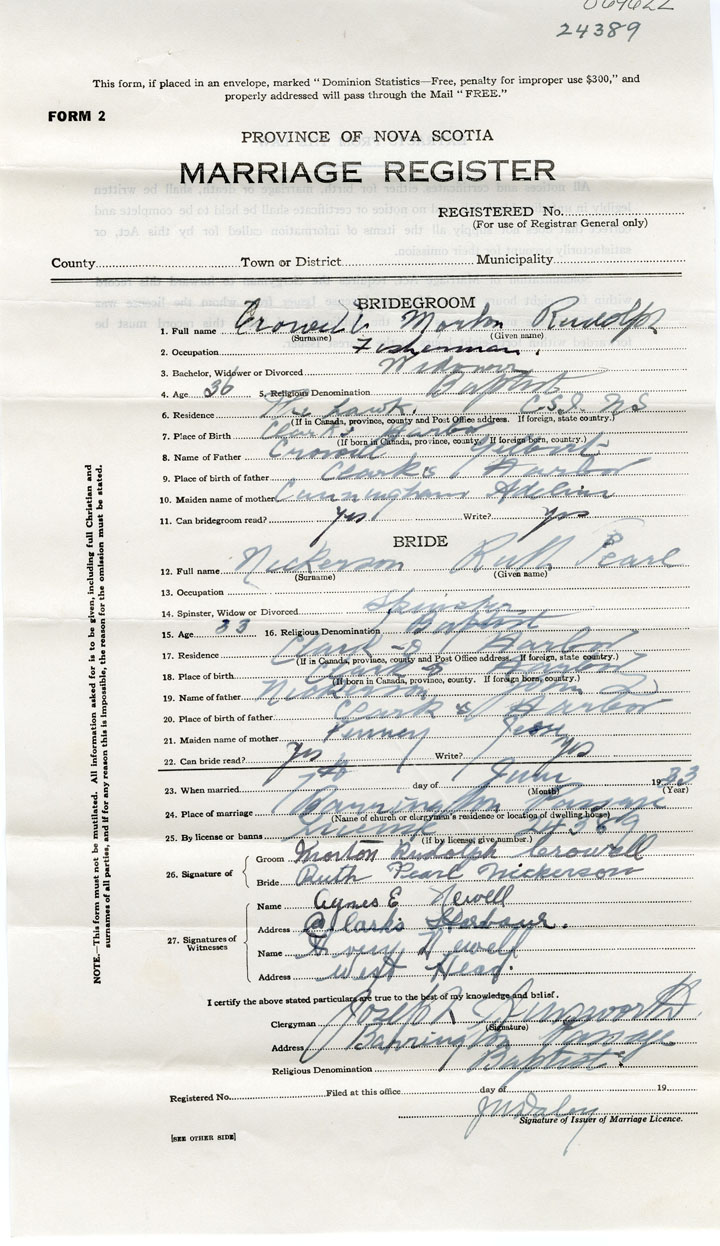 24389
This form, if placed in an envelope, marked "Dominion Statistics—Free, penalty for improper use $300," and
properly addressed will pass through the Mail "FREE."
FORM 2
PROVINCE OF NOVA SCOTIA
MARRIAGE REGISTER
REGISTERED No.
(For use of Registrar General only)
County Town or District Municipality
BRIDEGROOM
1. Full name Crowell Morton Rudolph
(Surname) (Given name)
2. Occupation Fisherman.
3. Bachelor, Widower or Divorced Widower
4. Age 36 5. Religious Denomination Baptist
6. Residence The Hawk. C.S.I. NS
(If in Canada, province, county and Post Office address. If foreign, state country.)
7. Place of Birth Clark's Harbor
(If born in Canada, province, county. If foreign born, country.)
8. Name of Father Crowell
9. Place of birth of father Clark's Harbor
10. Maiden name of mother Cunningham Adeline
11. Can bridegroom read? yes Write? yes
BRIDE
12. Full name Nickerson Ruth Pearl
(Surname) (Given name)
13. Occupation
14. Spinster, Widow or Divorced Spinster
15. Age 33 16. Religious Denomination Baptist
17. Residence Clark's Harbor
(If in Canada, province, county and Post Office address. If foreign, state country.)
18. Place of birth Clark's Harbor
(If born in Canada, province, county. If foreign born, country.)
19. Name of father Nickerson John
20. Place of birth of father Clark's Harbor
21. Maiden name of mother Kenney
22. Can bride read? Yes Write? Yes
23. When married 7th day of June 1933
(Month) (Year)
24. Place of marriage Barrington Passage
(Name of church or clergyman's residence or location of dwelling house)
25. By license or banns License
(If by license, give number.)
26. Signature of { Groom Morton Rudolph Crowell
Bride Ruth Pearl Nickerson
27. Signatures of Witnesses { Name Agnes E Newell
Address Clark's Harbour.
Name Avery Newell
Address West Head.
I certify the above stated particulars are true to the best of my knowledge and belief.
Clergyman Joseph
(Signature)
Address Barrington Passage
Religious Denomination Baptist
Registered No. Filed at this office day of 19
Signature of Issuer of Marriage Licence.
[SEE OTHER SIDE]
NOTE.—This form must not be mutilated. All information asked for is to be given, including full Christian and
surnames of all parties, and if for any reason this is impossible, the reason for the omission must be stated.